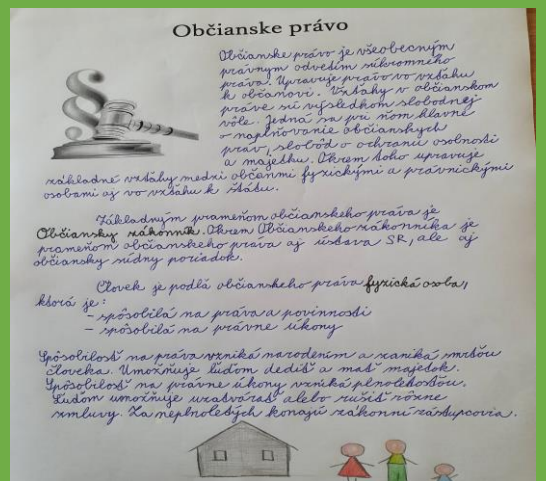 Občianske právo
Občianske právo je všeobecným
právnym odvetvím súkromného
práva. Upravuje právo vo vzťahu
k občanovi. Vzťahy v občianskom
práve sú výsledkom slobodnej
vôle. Jedná sa pri ňom hlavne
o naplňovanie občianskych
práv, slobôd o ochranu osobnosti
a majetku. Okrem toho upravuje
základné vzťahy medzi občanmi fyzickými a právnickými
osobami aj vo vzťahu k štátu.
Základným prameňom občianskeho práva je
Občiansky zákonník. Okrem Občianskeho zákonníka je
prameňom občianskeho práva aj ústava SR, ale aj
občiansky súdny poriadok.
Človek je podľa občianskeho práva fyzická osoba,
ktorá je:
- spôsobilá na práva a povinnosti
- spôsobilá na právne úkony
Spôsobilosť na práva vzniká narodením a zaniká smrťou
človeka. Umožňuje ľuďom dediť a mať majetok.
Spôsobilosť na právne úkony vzniká plnoletosťou.
Ľuďom umožňuje uzatvárať alebo rušiť rôzne
zmluvy. Za neplnoletých konajú zákonní zástupcovia.